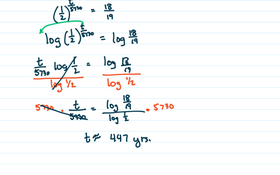 (1/2)^(t/5730) = 18/19
log (1/2)^(t/5730) = log 18/19
t/5730 log 1/2 / log 1/2 = log 18/19 / log 1/2
5730 · t/5730 = log 18/19 / log 1/2 · 5730
t ≈ 447 yrs.